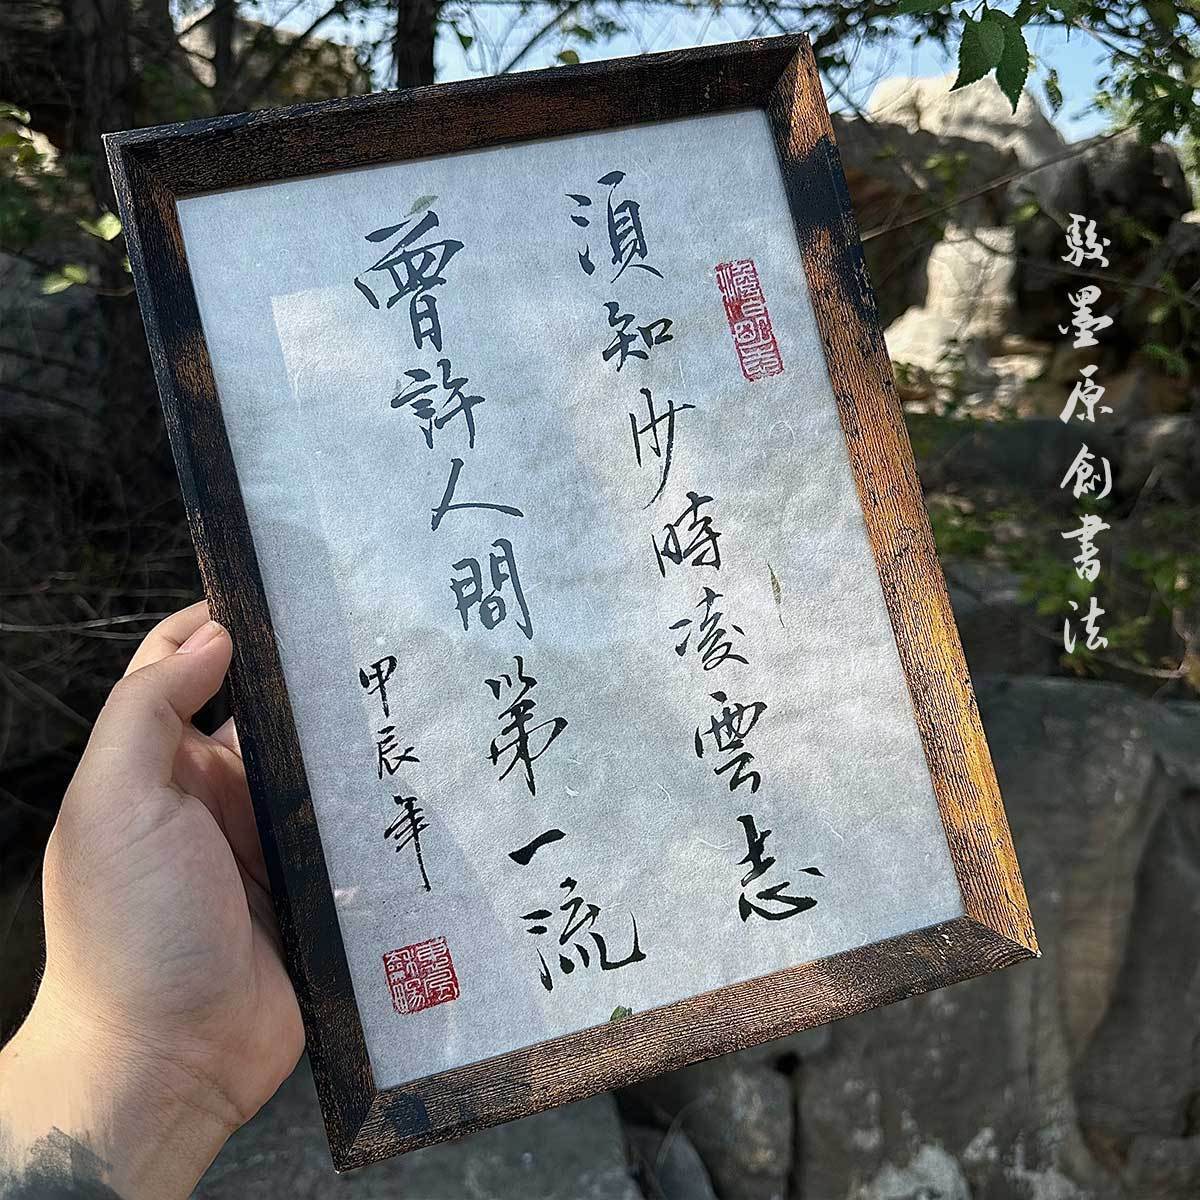 須知少時凌雲志
曾許人間第一流
甲辰年
駿墨原創書法